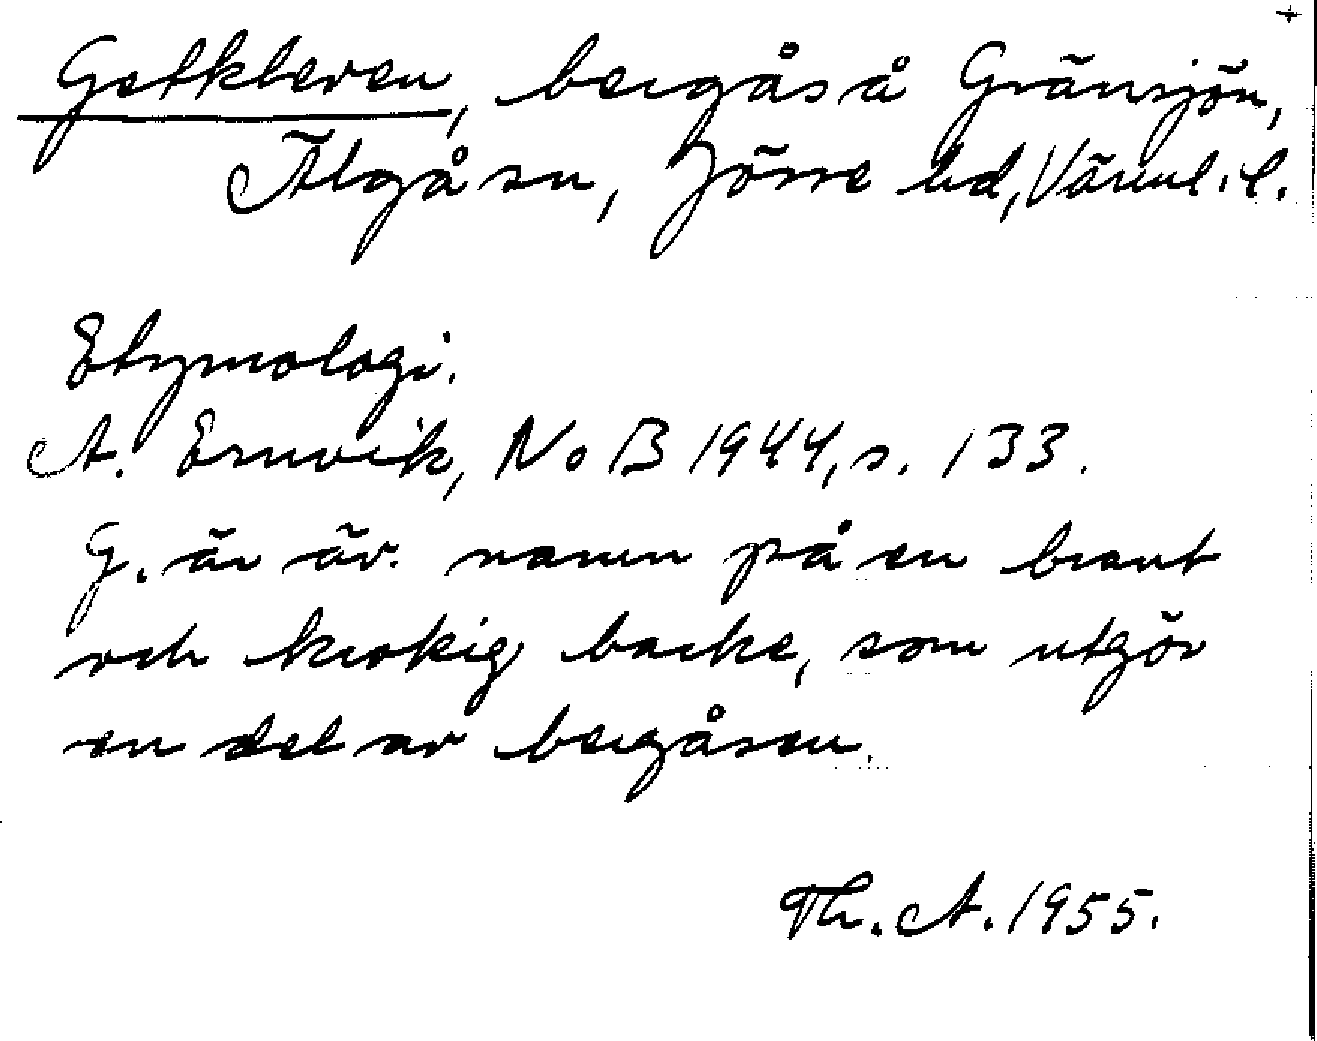 +
Getkleven, bergås å Gränsjön,
Älgåsen, Jösse hd, Värml. l.
Etymologi.
A. Ernvik, NoB 1944, s. 133.
G. är äv. namn på en brant
och krokig backe, som utgör
en del av bergåsen.
Th. A. 1955.